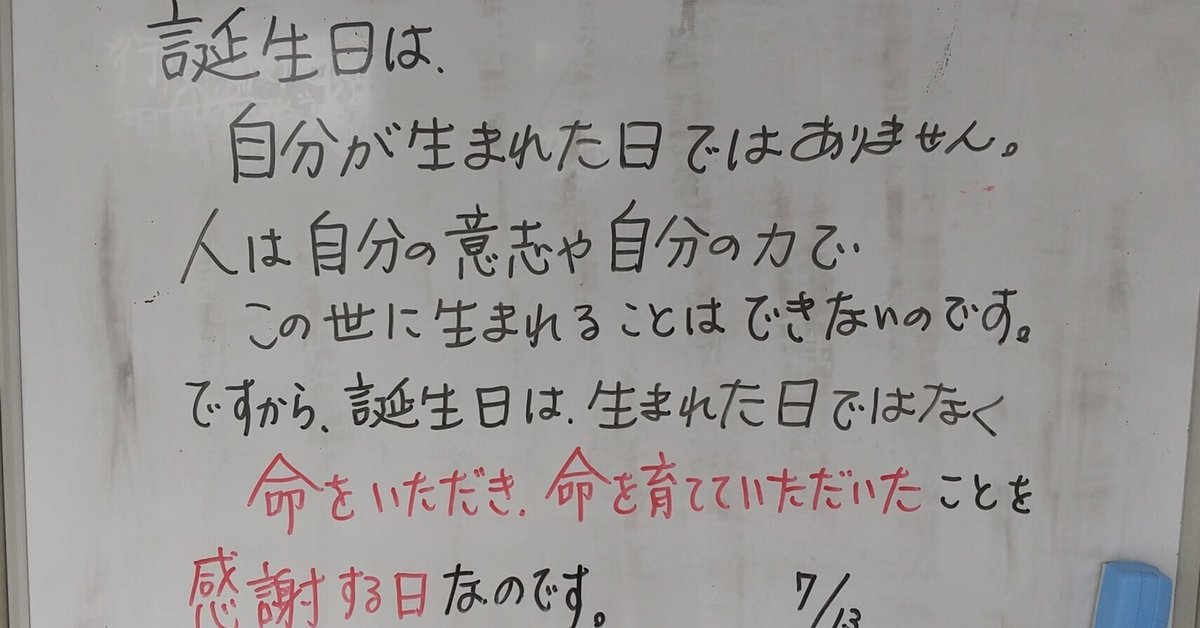 誕生日は、
自分が生まれた日ではありません。
人は自分の意志や自分の力で
この世に生まれることはできないのです。
ですから、誕生日は、生まれた日ではなく
命をいただき、命を育てていただいたことを
感謝する日なのです。 7/13